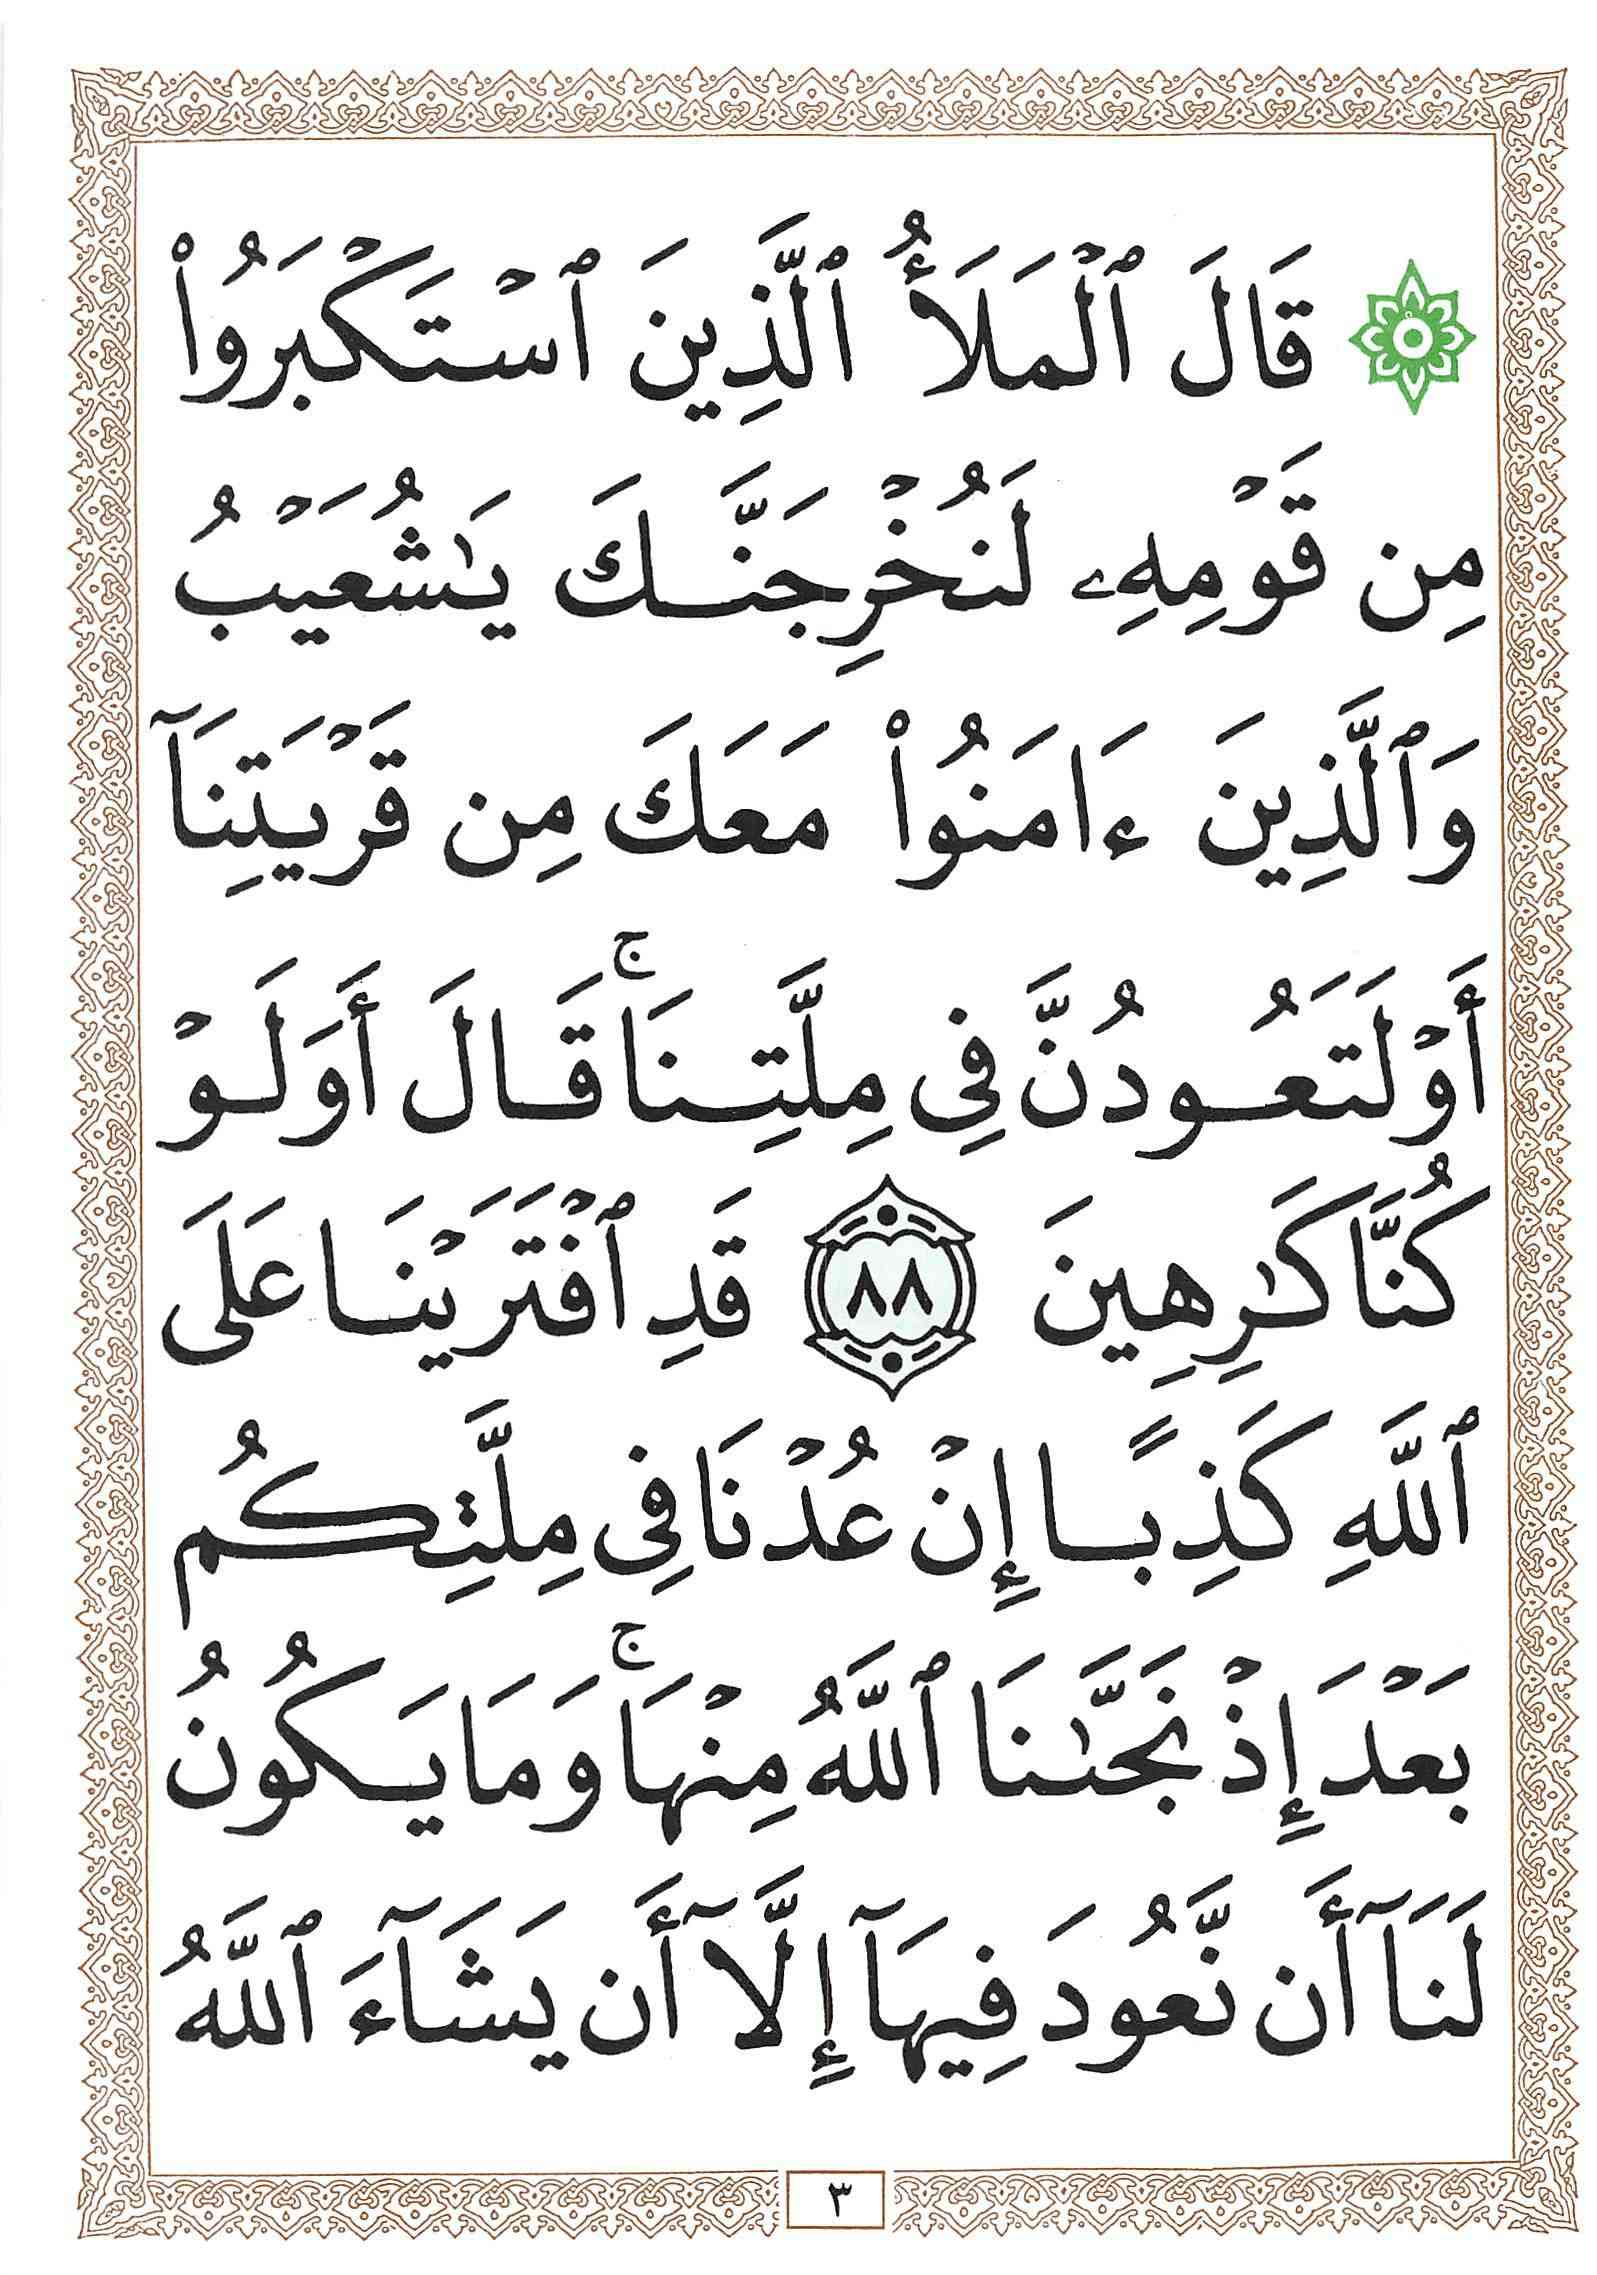 ۞ قَالَ ٱلْمَلَأُ ٱلَّذِينَ ٱسْتَكْبَرُوا۟
مِن قَوْمِهِۦ لَنُخْرِجَنَّكَ يَـٰشُعَيْبُ
وَٱلَّذِينَ ءَامَنُوا۟ مَعَكَ مِن قَرْيَتِنَآ
أَوْ لَتَعُودُنَّ فِى مِلَّتِنَا ۚ قَالَ أَوَلَوْ
كُنَّا كَـٰرِهِينَ ٨٨ قَدِ ٱفْتَرَيْنَا عَلَى
ٱللَّهِ كَذِبًا إِنْ عُدْنَا فِى مِلَّتِكُم
بَعْدَ إِذْ نَجَّىٰنَا ٱللَّهُ مِنْهَا ۚ وَمَا يَكُونُ
لَنَآ أَن نَّعُودَ فِيهَآ إِلَّآ أَن يَشَآءَ ٱللَّهُ
٣